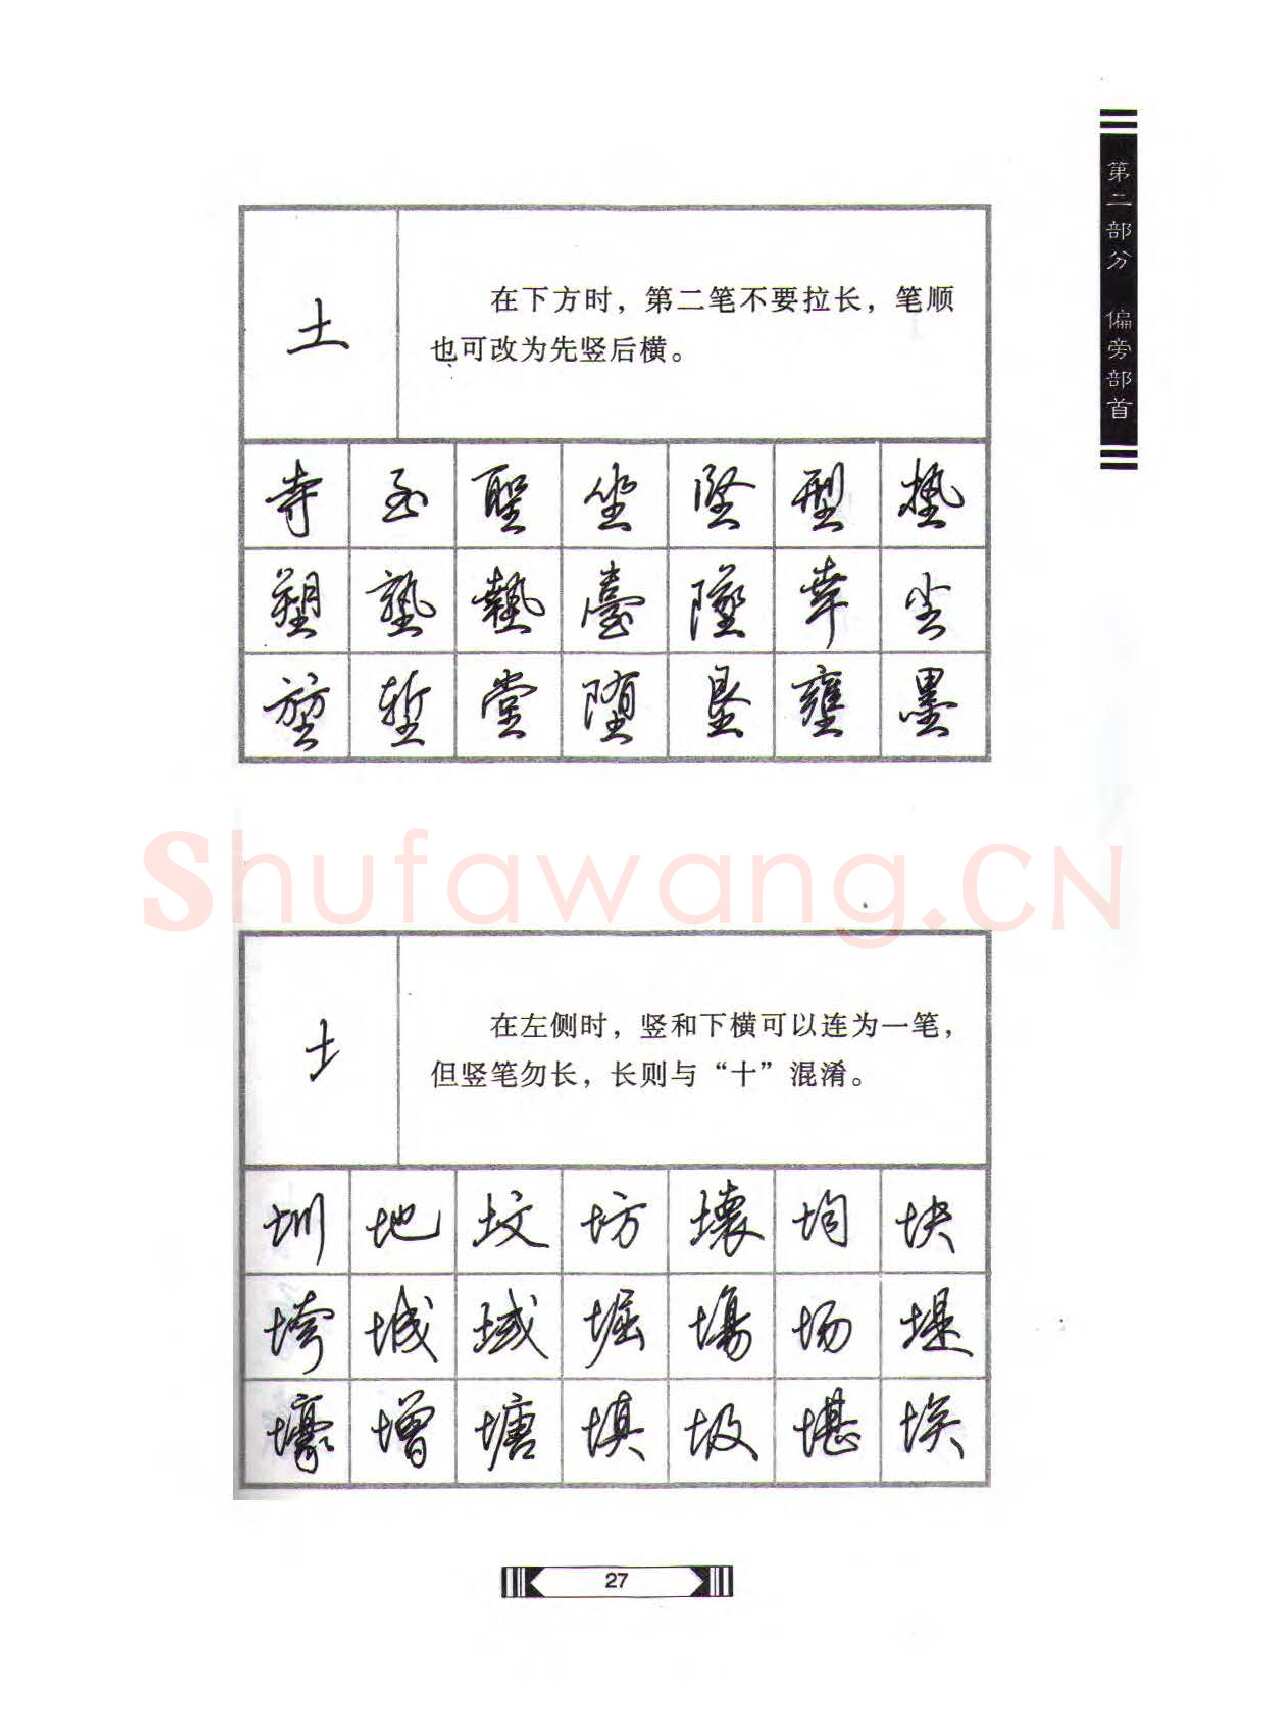 第二部分 偏旁部首
土
在下方时，第二笔不要拉长，笔顺
也可改为先竖后横。
寺 至 聖 坐 坚 型 垫
塑 塾 執 臺 墜 幸 尘
堃 堂 堕 垦 壅 墨
Shufawang.CN
土
在左侧时，竖和下横可以连为一笔，
但竖笔勿长，长则与“十”混淆。
圳 地 坟 坊 壞 均 块
垮 城 域 堀 場 场 堤
壕 增 塘 填 圾 堪 埃
27